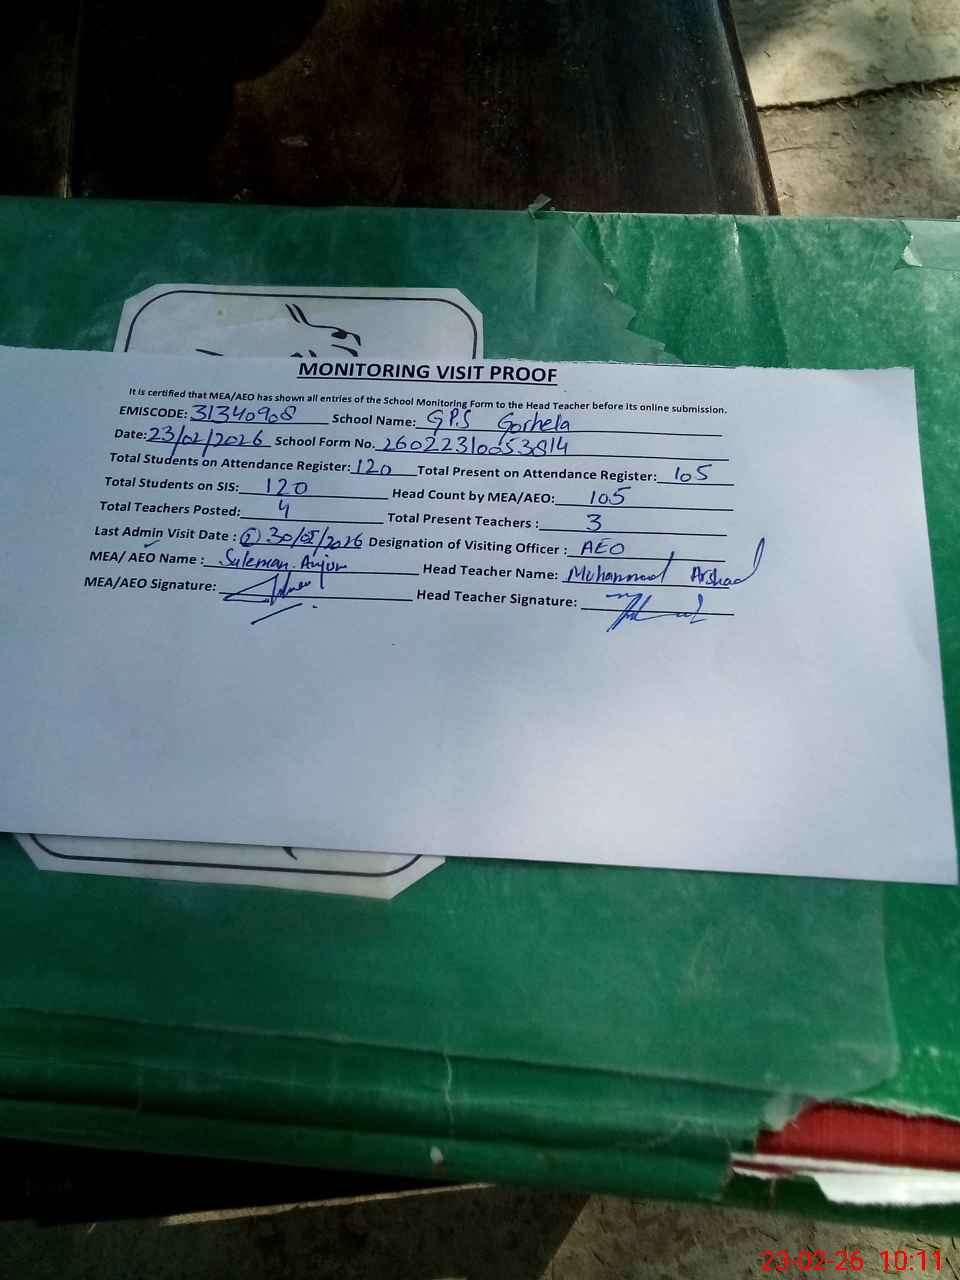 MONITORING VISIT PROOF
It is certified that MEA/AEO has shown all entries of the School Monitoring Form to the Head Teacher before its online submission.
EMISCODE: 31340908 School Name: G.P.S Gorhela
Date: 23/02/2026 School Form No. 26022310053814
Total Students on Attendance Register: 120 Total Present on Attendance Register: 105
Total Students on SIS: 120 Head Count by MEA/AEO: 105
Total Teachers Posted: 4 Total Present Teachers : 3
Last Admin Visit Date : 2026 Designation of Visiting Officer : AEO
MEA/ AEO Name : Suleman Anjum Head Teacher Name: Muhammad Arshad
MEA/AEO Signature: Head Teacher Signature:
23-02-26 10:11